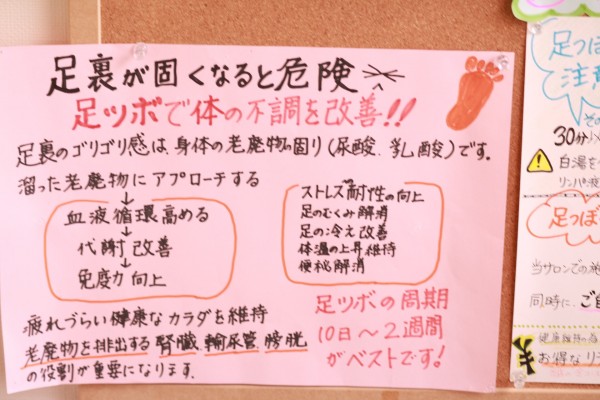 足裏が固くなると危険
足ツボで体の不調を改善!!
足裏のゴリゴリ感は、身体の老廃物の固り(尿酸、乳酸)です。
溜った老廃物にアプローチする
↓
血液循環高める
↓
代謝改善
↓
免疫力向上
ストレス耐性の向上
足のむくみ解消
足の冷え改善
体温の上昇維持
便秘解消
疲れづらい健康なカラダを維持
老廃物を排出する腎臓、輸尿管、膀胱
の役割が重要になります。
足ツボの周期
10日〜2週間
がベストです!
足つぼ
注意
その
30分以
白湯を
リンパ液
足つぼ
当サロンでの施
同時に、ご自
健康維持の為
お得な